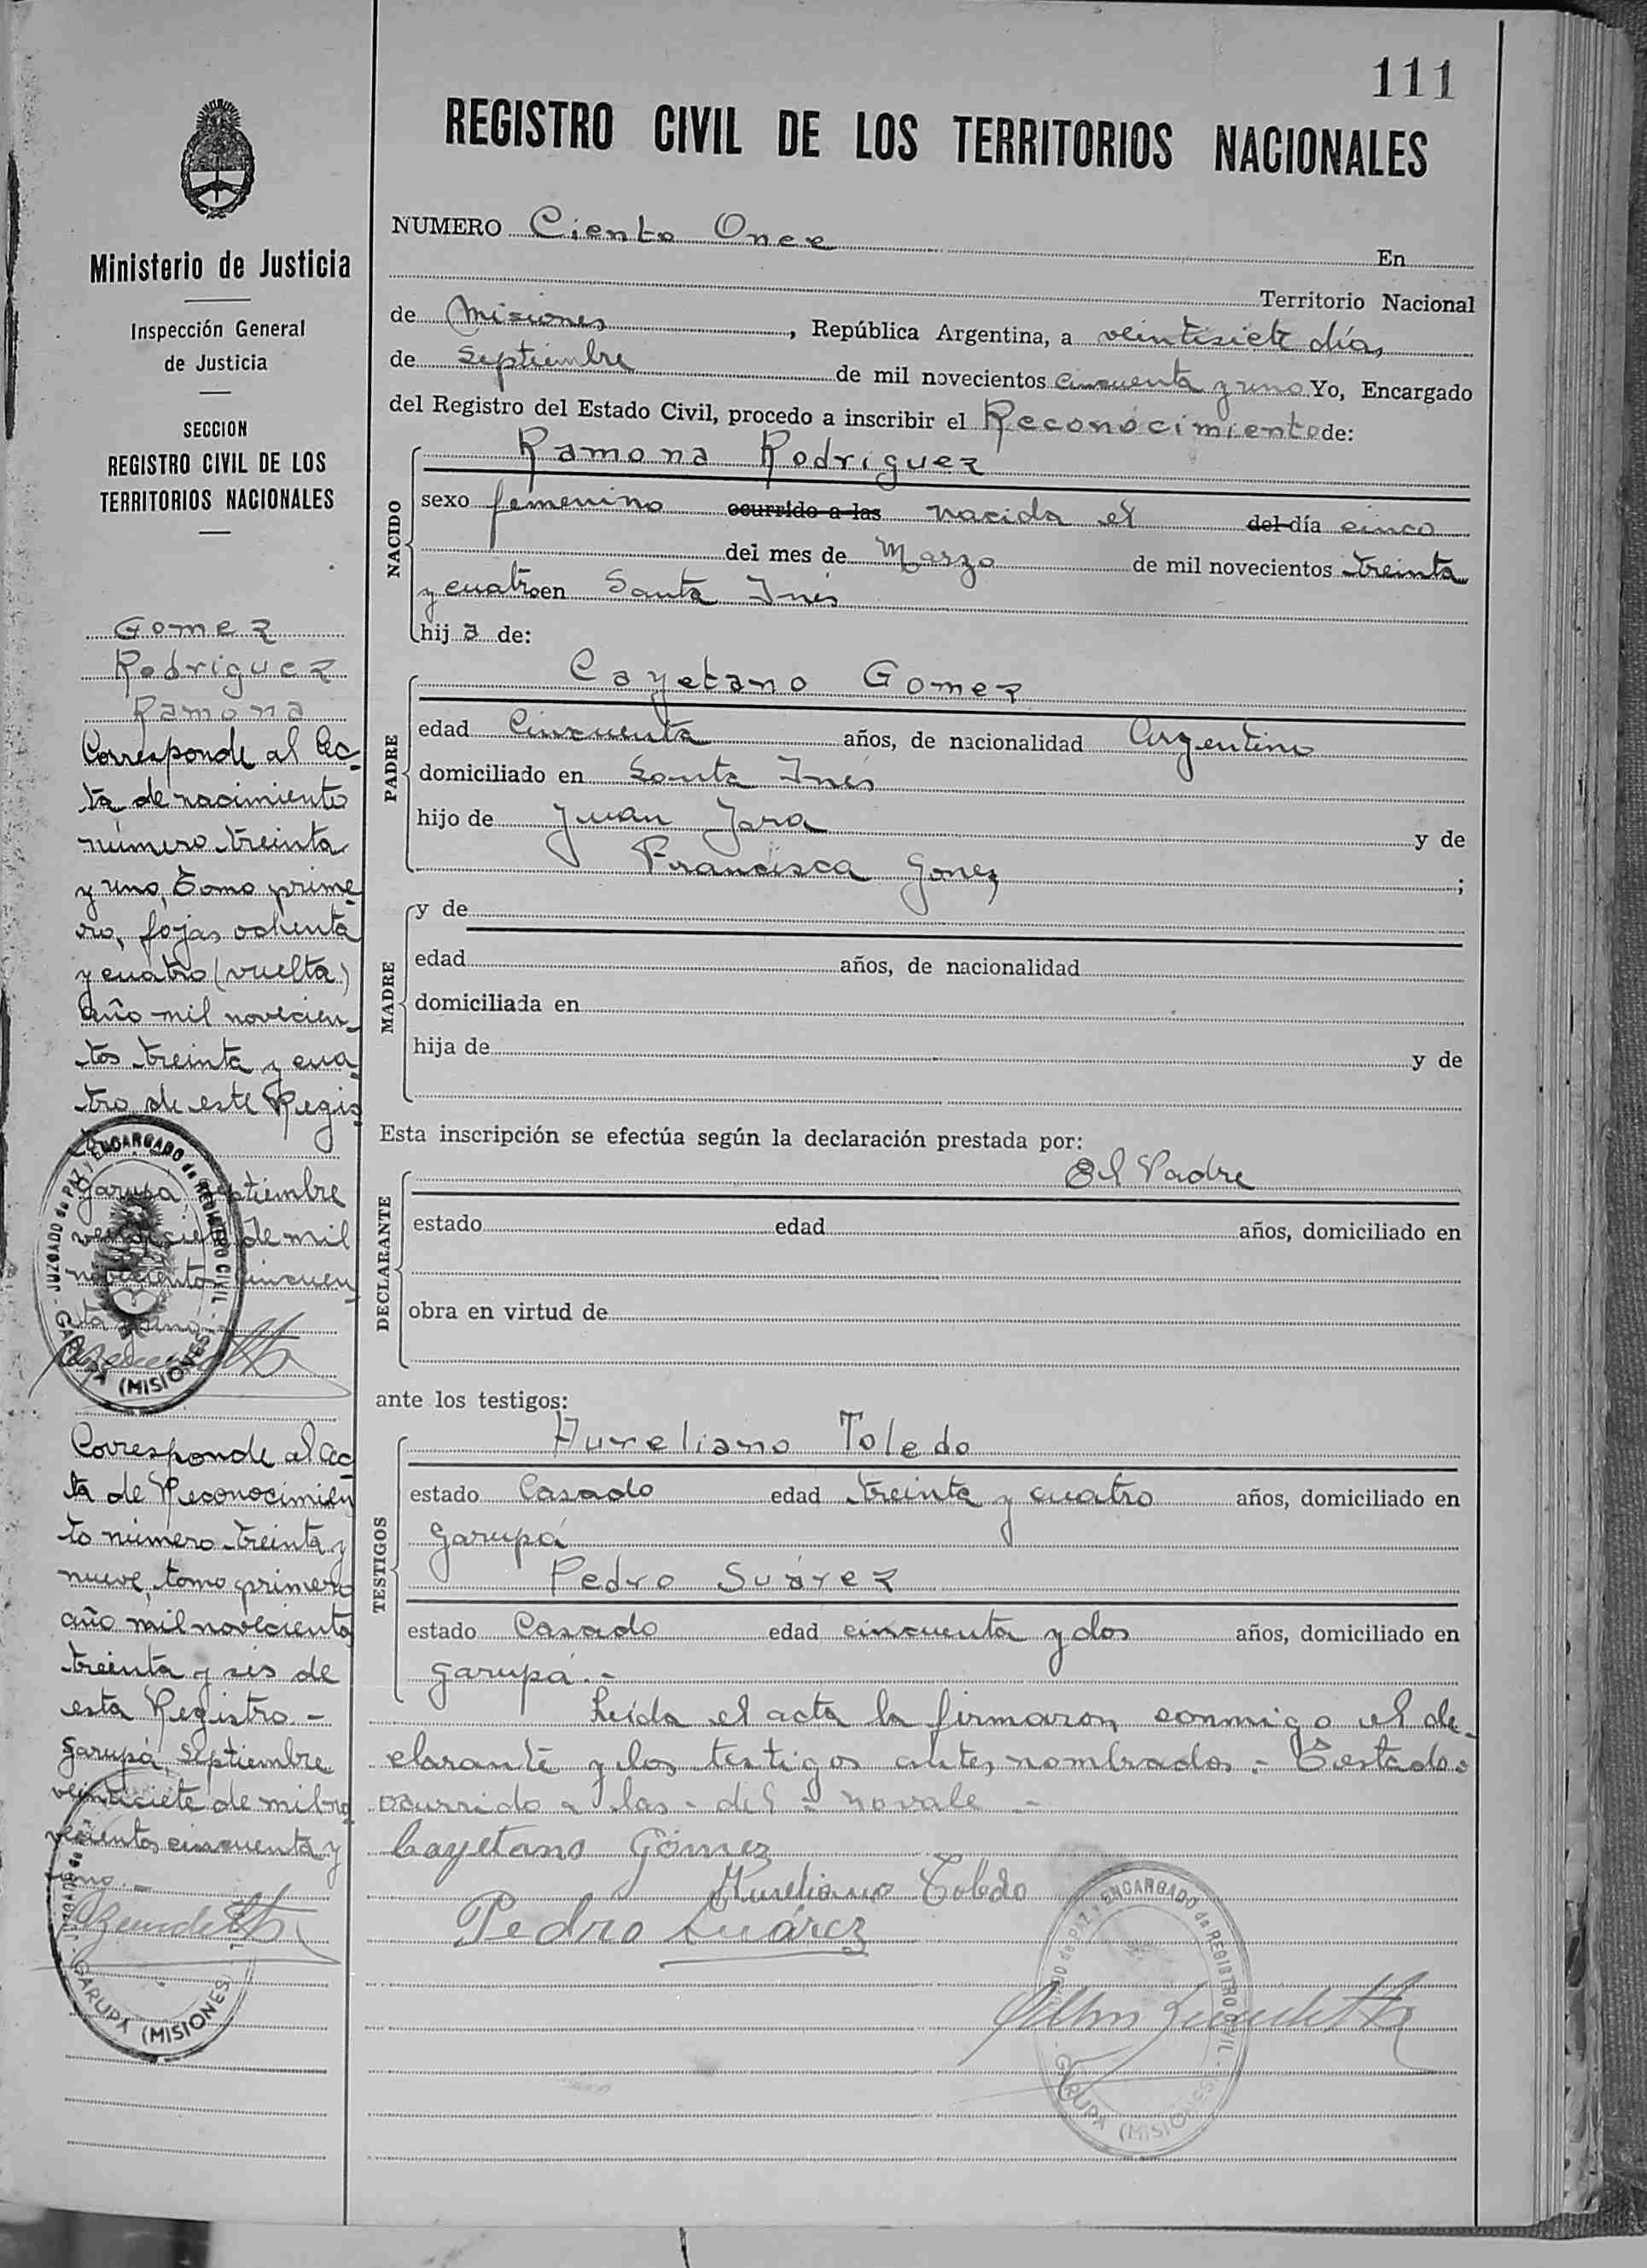 111
REGISTRO CIVIL DE LOS TERRITORIOS NACIONALES
Ministerio de Justicia
Inspección General
de Justicia
SECCION
REGISTRO CIVIL DE LOS
TERRITORIOS NACIONALES
Gomez
Rodriguez
Ramona
Corresponde al Ac-
ta de nacimiento
número treinta
y uno, tomo prime-
ro, fojas ochenta
y cuatro (vuelta)
año mil novecien-
tos treinta y cua-
tro de este Regis
Garupá septiembre
de mil
novecientos cincuen
ta y uno
JUZGADO de PAZ y ENCARGADO de REGISTRO CIVIL -
GARUPA (MISIONES)
Corresponde al Ac-
ta de Reconocimien
to número treinta y
nueve, tomo primero
año mil novecientos
treinta y seis de
esta Registro.-
Garupá, septiembre
veintisiete de mil no
vecientos cincuenta y
uno.-
GARUPA (MISIONES)
NUMERO Ciento Once En
Territorio Nacional
de Misiones, República Argentina, a veintisiete días
de Septiembre de mil novecientos cincuenta y uno Yo, Encargado
del Registro del Estado Civil, procedo a inscribir el Reconocimiento de:
NACIDO
Ramona Rodriguez
sexo femenino ocurrido a las nacida el del día cinco
del mes de Marzo de mil novecientos treinta
y cuatro en Santa Inés
hij a de:
PADRE
Cayetano Gomez
edad Cincuenta años, de nacionalidad Argentino
domiciliado en Santa Inés
hijo de Juan Jara y de
Francisca Gomez ;
MADRE
y de
edad años, de nacionalidad
domiciliada en
hija de y de
Esta inscripción se efectúa según la declaración prestada por:
DECLARANTE
El Padre
estado edad años, domiciliado en
obra en virtud de
ante los testigos:
TESTIGOS
Aureliano Toledo
estado Casado edad treinta y cuatro años, domiciliado en
Garupá
Pedro Suárez
estado Casado edad cincuenta y dos años, domiciliado en
Garupá.-
Leída el acta la firmaron conmigo el de-
clarante y los testigos antes nombrados.- Testado:
ocurrido a las - del - no vale -
Cayetano Gómez
Aureliano Toledo
Pedro Suárez
ENCARGADO de REGISTRO CIVIL -
GARUPA (MISIONES)